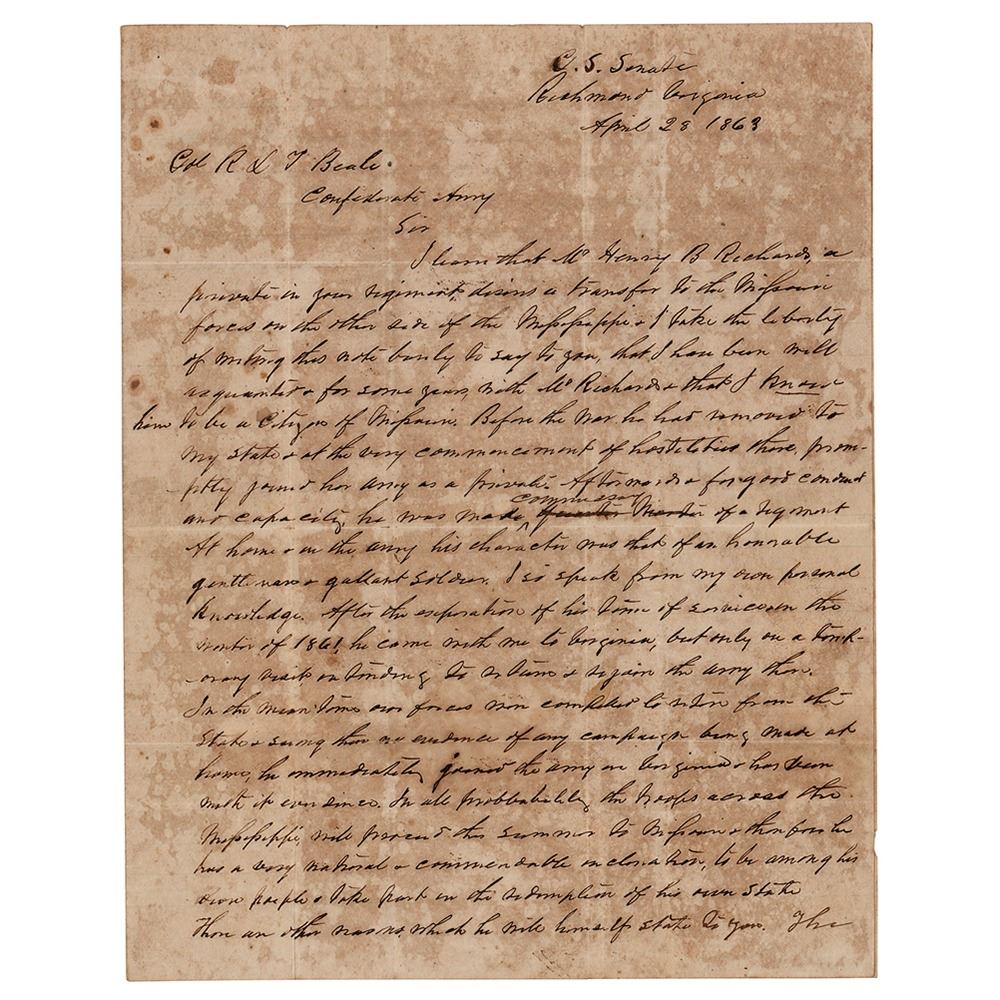 C. S. Senate
Richmond Virginia
April 28 1863
Col R L T Beale
Confederate Army
Sir
I learn that Mr Henry B Richards, a
private in your regiment, desires a transfer to the Missouri
forces on the other side of the Mississippi & I take the liberty
of writing this note barely to say to you, that I have been well
acquainted & for some years, with Mr Richards & that I know
him to be a Citizen of Missouri. Before the War he had removed to
my state & at the very commencement of hostilities there, prom-
-ptly joined her army as a private. Afterwards & for good conduct
commissary
and capacity, he was made Quarter Master of a regiment
At home & in the army his character was that of an honorable
gentleman & gallant soldier. I so speak from my own personal
knowledge. After the expiration of his term of service in the
winter of 1861, he came with me to Virginia, but only on a temp-
-orary visit intending to return & rejoin the army there.
In the mean time our forces were compelled to retire from the
State & seeing then no evidence of any campaign being made at
home, he immediately joined the army in Virginia & has been
with it ever since. In all probbability the troops across the
Mississippi, will proceed this summer to Missouri & therefore he
has a very natural & commendable inclination, to be among his
own people & take part in the redemption of his own State
There are other reasons, which he will himself state to you. The